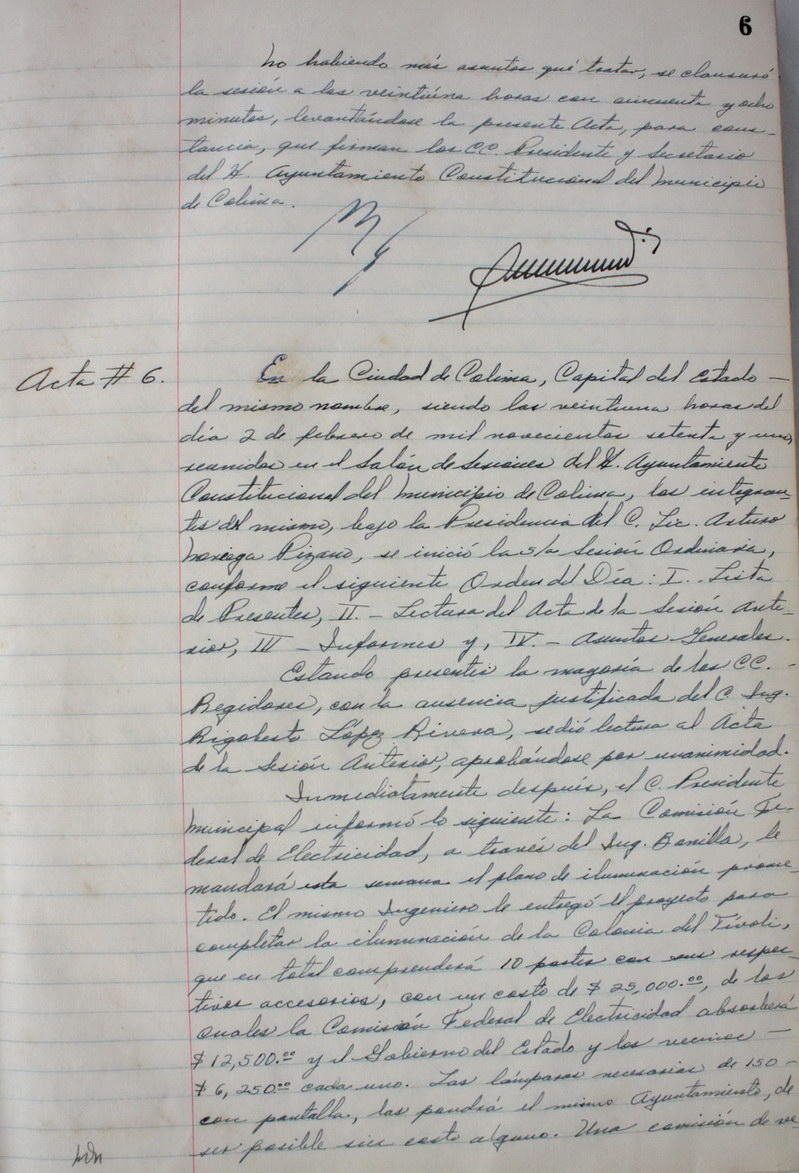 6
No habiendo más asuntos qué tratar, se clausuró
la sesión a las veintiúna horas con cincuenta y ocho
minutos, levantándose la presente Acta, para cons-
tancia, que firman los CC. Presidente y Secretario
del H. Ayuntamiento Constitucional del Municipio
de Colima.
Acta # 6.
En la Ciudad de Colima, Capital del Estado —
del mismo nombre, siendo las veintiuna horas del
día 2 de febrero de mil novecientos setenta y uno,
reunidos en el Salón de Sesiones del H. Ayuntamiento
Constitucional del Municipio de Colima, los integran-
tes del mismo, bajo la Presidencia del C. Lic. Arturo
Noriega Pizano, se inició la 5/a Sesión Ordinaria,
conforme el siguiente Orden del Día: I.- Lista
de Presentes, II.- Lectura del Acta de la Sesión Ante-
rior, III - Informes y, IV.- Asuntos Generales.
Estando presentes la mayoría de los CC. -
Regidores, con la ausencia justificada del C. Ing.
Rigoberto López Rivera, se dió lectura al Acta
de la Sesión Anterior, aprobándose por unanimidad.
Inmediatamente después, el C. Presidente
Municipal informó lo siguiente: La Comisión Fe-
deral de Electricidad, a través del Ing. Bonilla, le
mandará esta semana el plano de iluminación prome-
tido. El mismo Ingeniero le entregó el proyecto para
completar la iluminación de la Colonia del Tívoli,
que en total comprenderá 10 postes con sus respec-
tivos accesorios, con un costo de $ 25,000.00, de los
cuales la Comisión Federal de Electricidad absorberá
$ 12,500.00 y el Gobierno del Estado y los vecinos —
$ 6,250.00 cada uno. Las lámparas necesarias de 150 -
con pantalla, las pondrá el mismo Ayuntamiento, de
ser posible sin costo alguno. Una comisión de ve